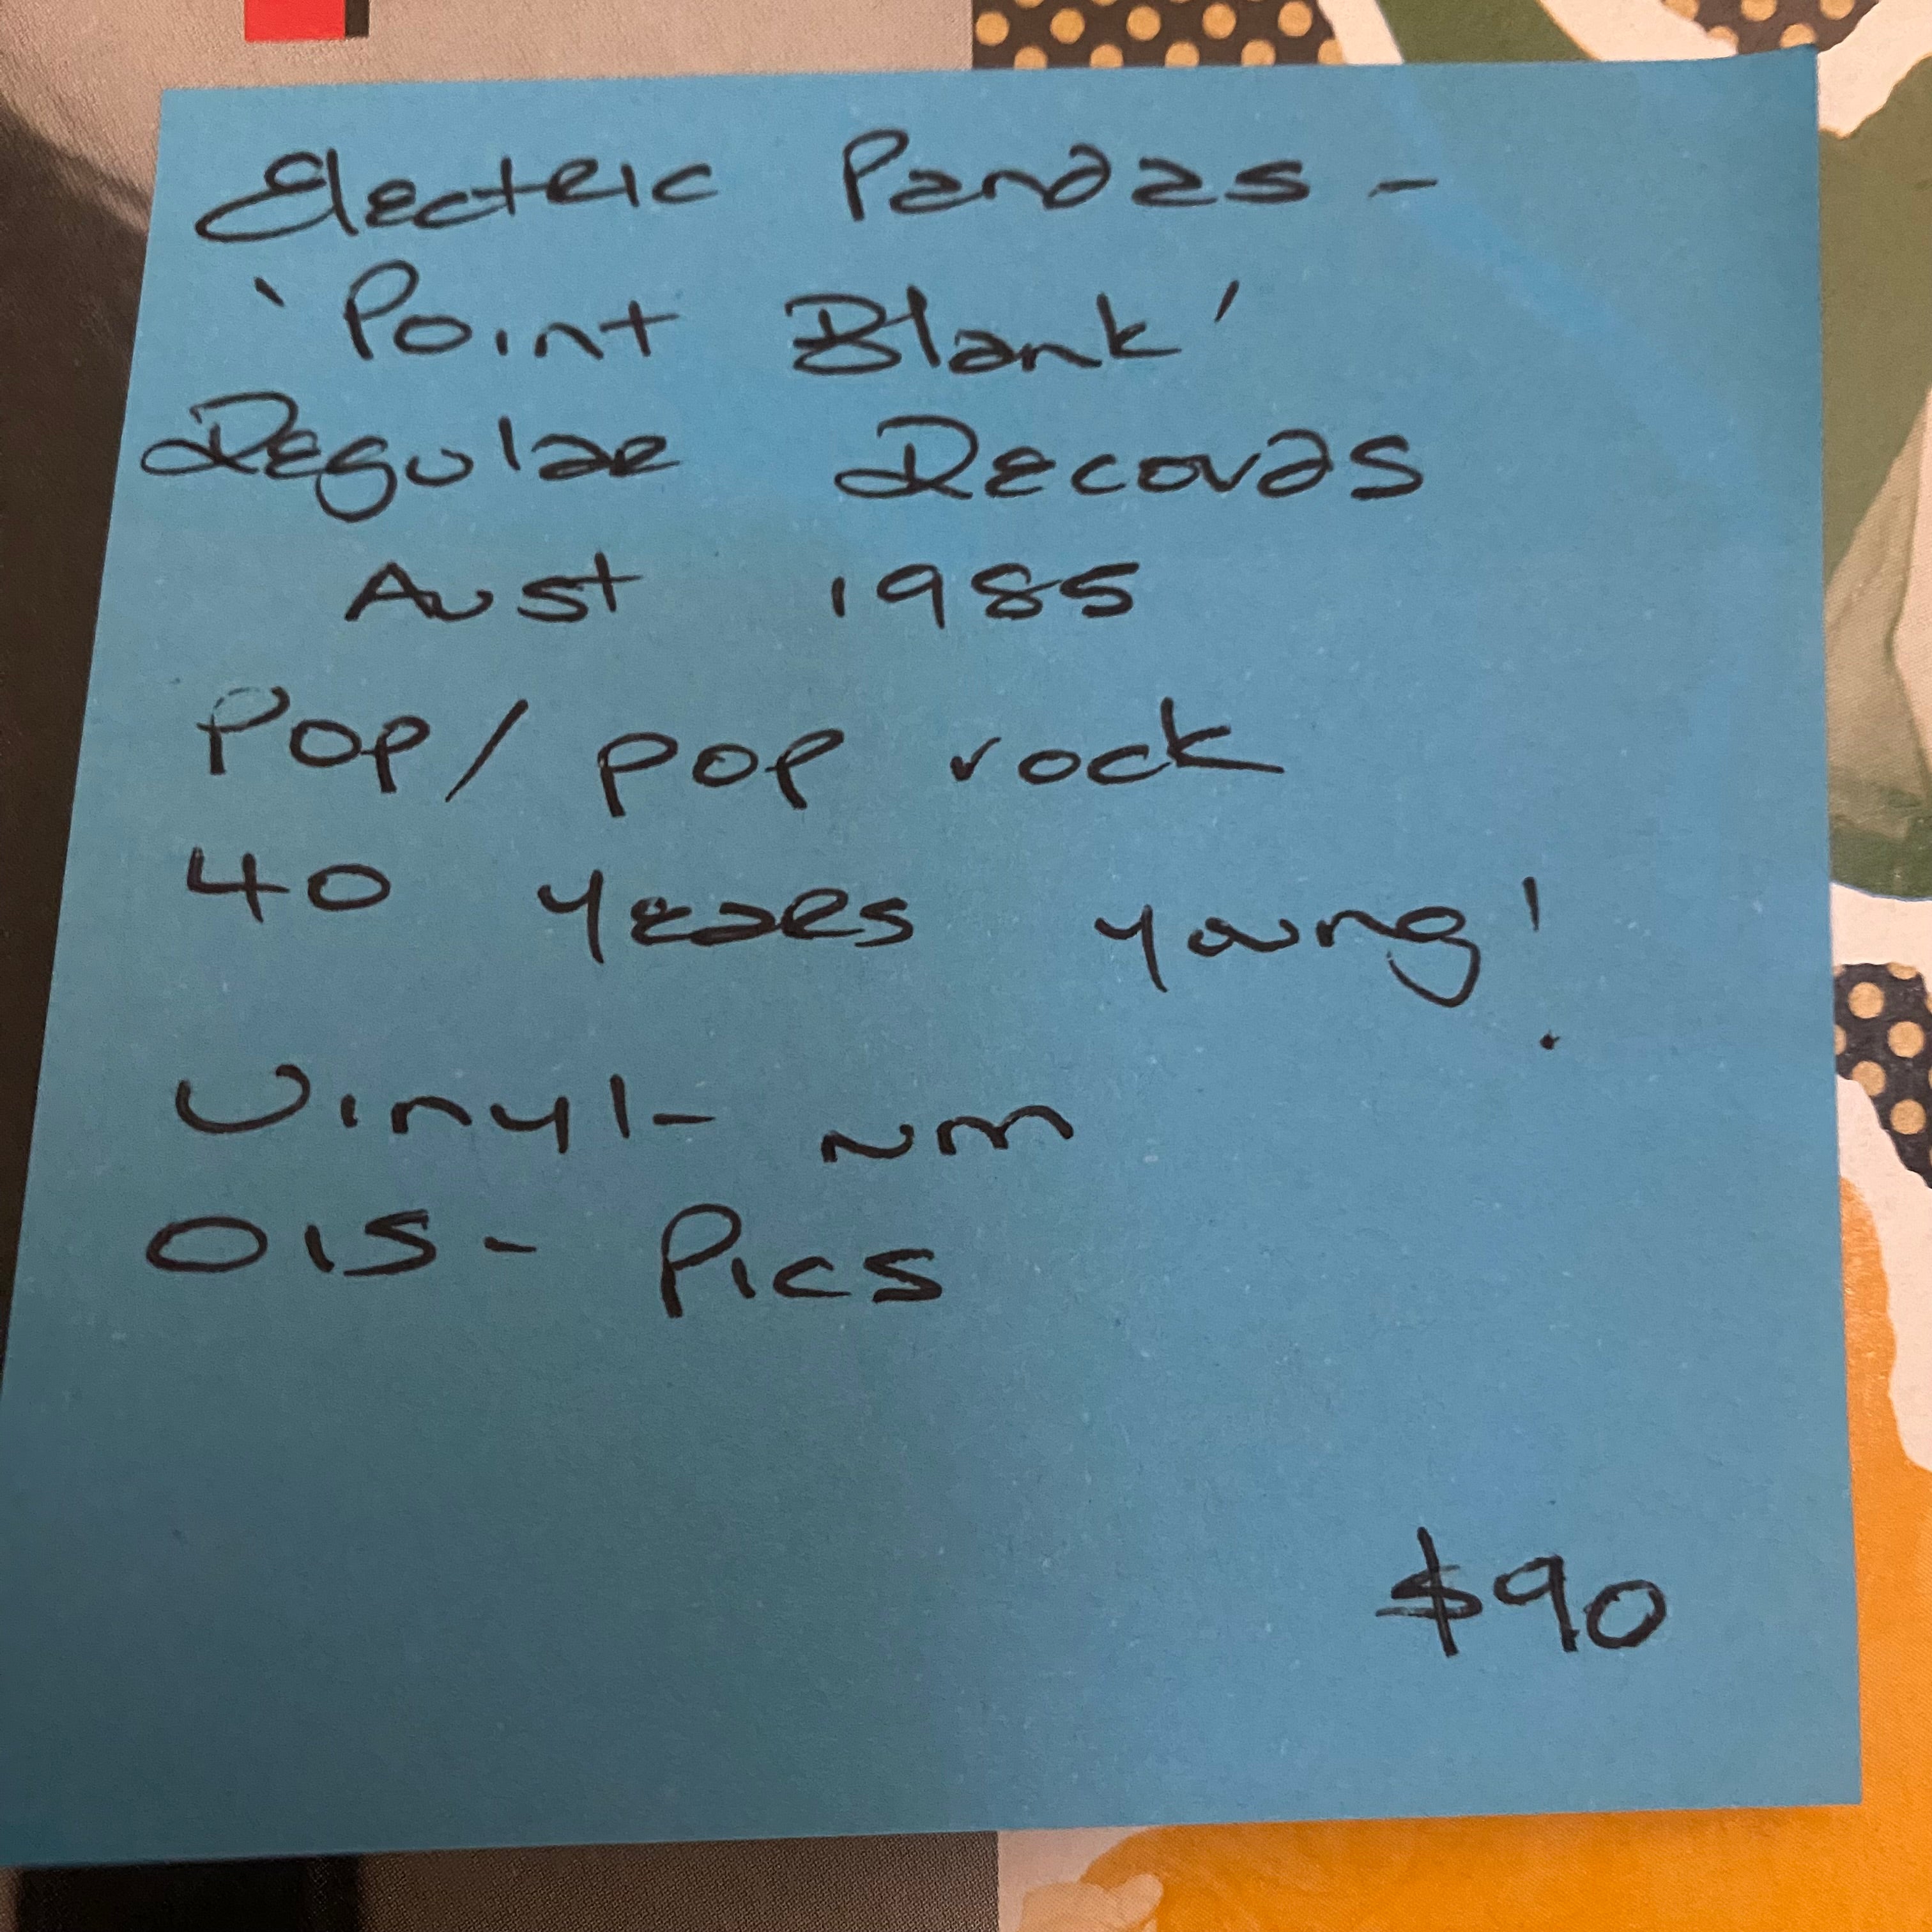 Electric Pandas -
'Point Blank'
Regular Records
Aust 1985
Pop/ pop rock
40 years young!
Vinyl - NM
OIS - Pics
$90